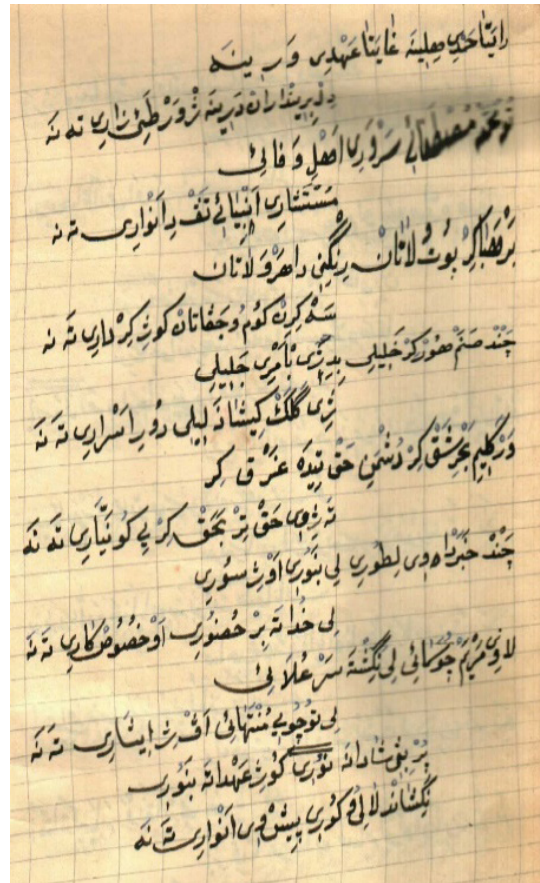 رايَتَا حَدِي مِعِلِينَه غَايَتَا عَهْدِي وَرِ ينَه
دِلْبِرِينْدَارَانْ دَرِينَه ژْوَرْ طَبِي زَارِي تَه نَه
مُصْطَفَائِي سَرْوَرِي اَهْلِ وَفَائِي
مُسْتَشَارِي اَنْبِيَائِي تَفْ دِ اَنْوَارِي تَه نَه
بُوتُ لَاتَانْ رِنْگِنِي دَاهَرْوَلَاتَانْ
سَهْ كِرِنْ كُومُ وجَفَاتَانْ كَوثِ كِرْدَارِي تَه نَه
چَنْد صَنَمْ هُورْكِرْ خَلِيلِي بِدِژِي بَامْرِي جَلِيلِي
ژِي گَلَكْ كِيشَانَه لَيْلِي دُورِ اَسْرَارِي تَه نَه
وَرْ كَلِيمْ بَحْرِ شَقْ كِرْ دُشْمِنِ حَقْ تِيدَه غَرْقْ كِر
تَه ژِوِي حَقْ تِرْ بَحَقْ كِرْ پِي كُو نَيَّارِي تَه نَه
چَنْد خَبَرْدَاه وِي لِطُورِي لِي بَنُورِي اَوْژِ سُورِي
لِي خُدَا تَه بِرْ حُضُورِي اَوْ خُصُوصْ كَارِي تَه نَه
لَاوِي مَرْيَمْ چُو سَمَائِي لِي نِگِشْتَه سَرْ عُلَائِي
لِي تُو چُويِي مُنْتَهَائِي اَڤْ ژِ ايثَارِي تَه نَه
پُرْ بِنِي شَادَانَه نُورِي كَوْرِ عَهْدَانَه بَنُورِي
نِگِشَانْد لَالِي وُكُورِي پِيشْ وِي اَنْوَارِي تَه نَه